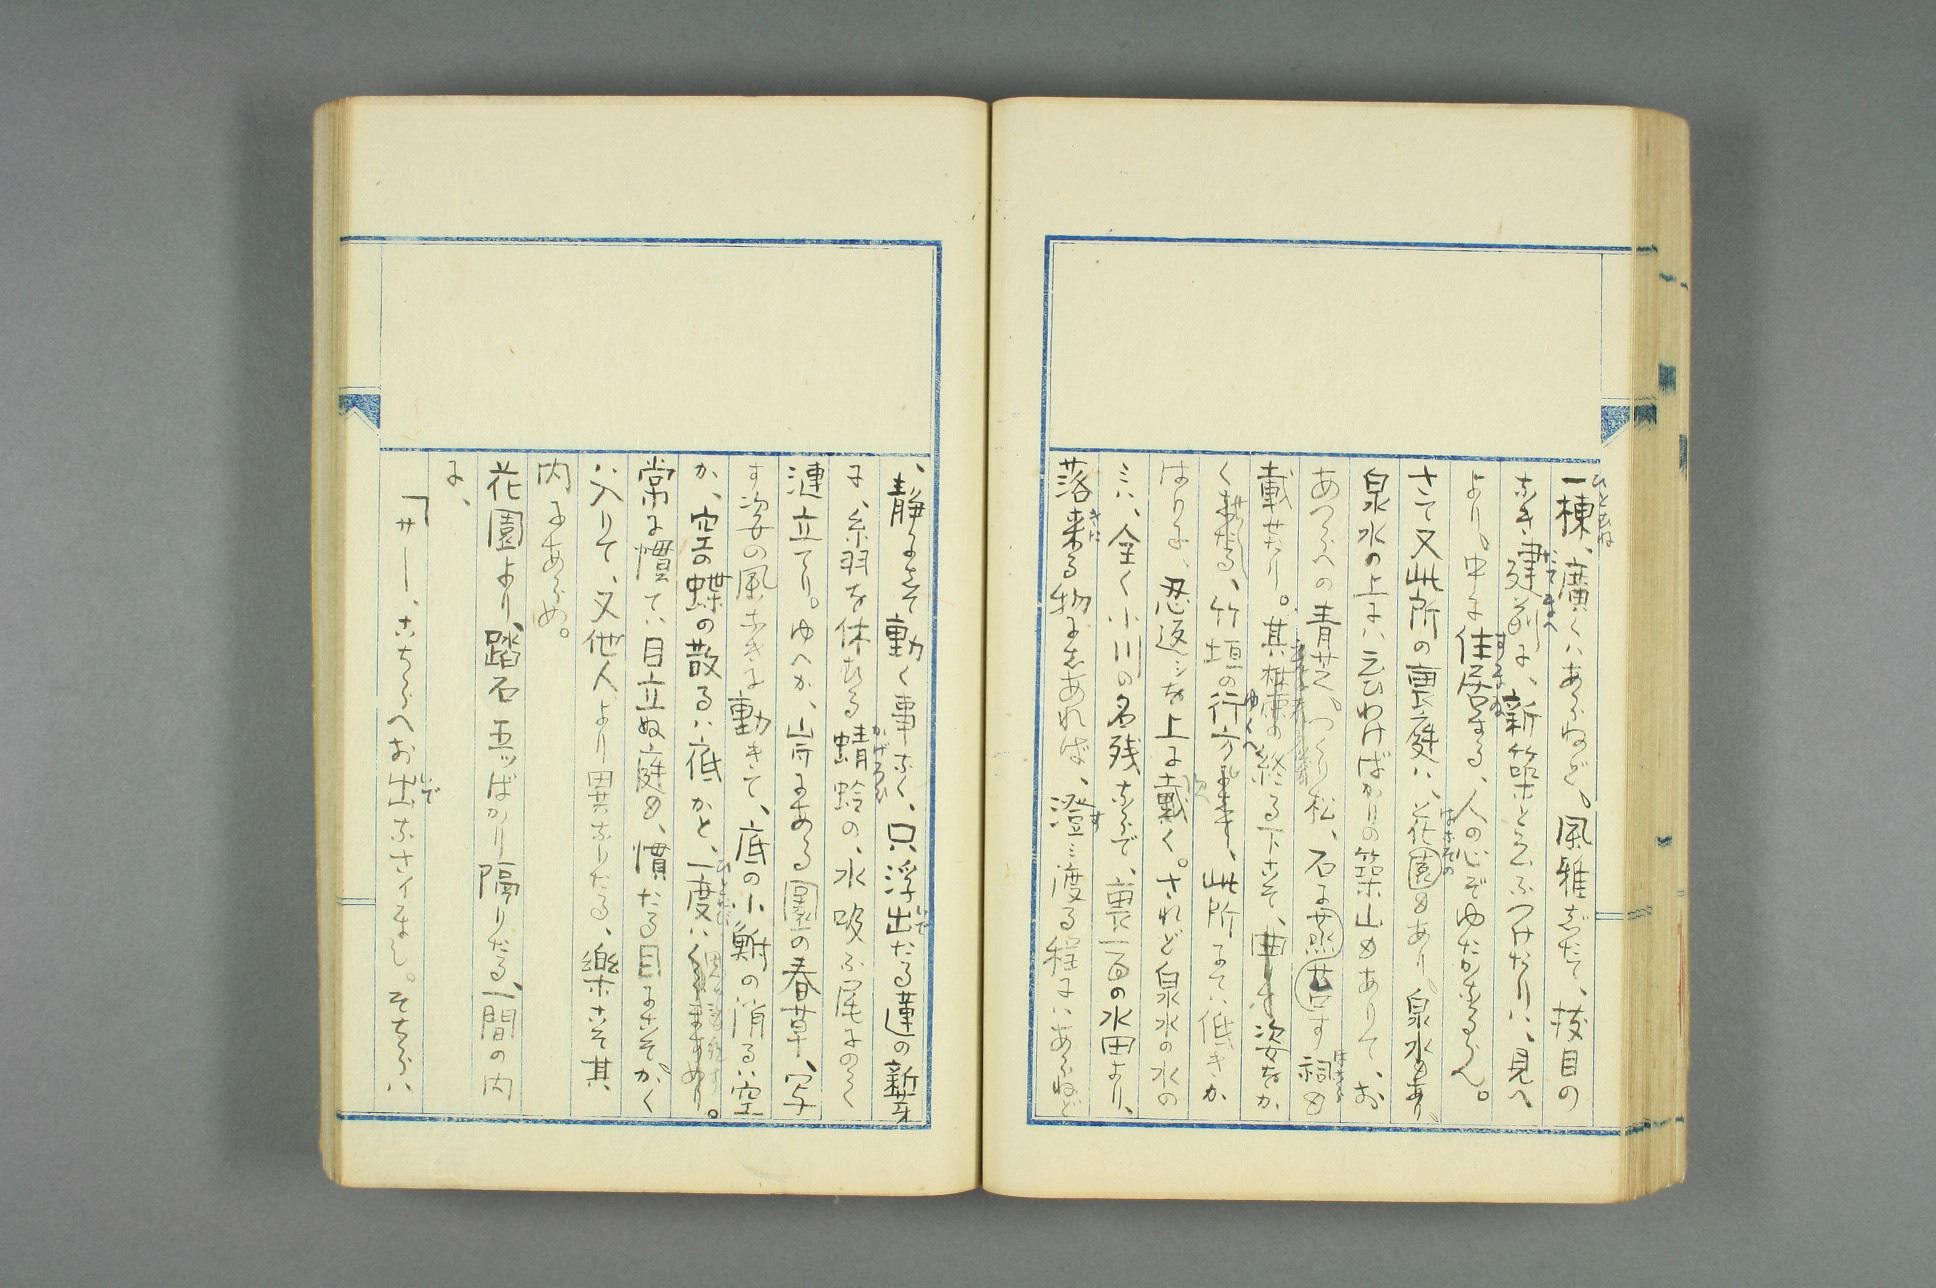 一棟、廣くハあらねど、風雅だちて、抜目の
なき建前に、新築と云ふつけたりハ、見へ
より、中に住居する、人の心ぞゆたかならん。
さて又此所の裏庭ハ、花園もあり、泉水もあり、
泉水の上にハ云ひわけばかりの築山もありて、お
あつらへの青芝、つくり松、石に無燃苔むす祠も
載せたり。其の終る下こそ、曲り姿をか
く、竹垣の行方、此所まてハ低きか
はりに、忍返シを上に戴く。されど泉水の水の
ミハ、全く小川の名残ならで、裏一面の水田より、
落来る物にしあれば、澄ミ渡る程にハあらねど
、静まして動く事なく、只浮出たる蓮の新芽
に、糸羽を休むる蜻蛉の、水吸ふ尾にのミく
漣立てり。ゆへか、岸にある園の春草、写
す姿の風なきに動きて、底の小鮒の消るハ空
か、空の蝶の散るハ底かと、一度ハ
常に慣てハ目立ぬ庭も、慣たる目にこそ、かく
ハ入りて、又他人より異なりたる、樂こそ其
内にあらめ。
花園より、踏石五ツばかり隔りたる、一間の内
に、
「サー、こちらへお出なさイまし。そちらハ